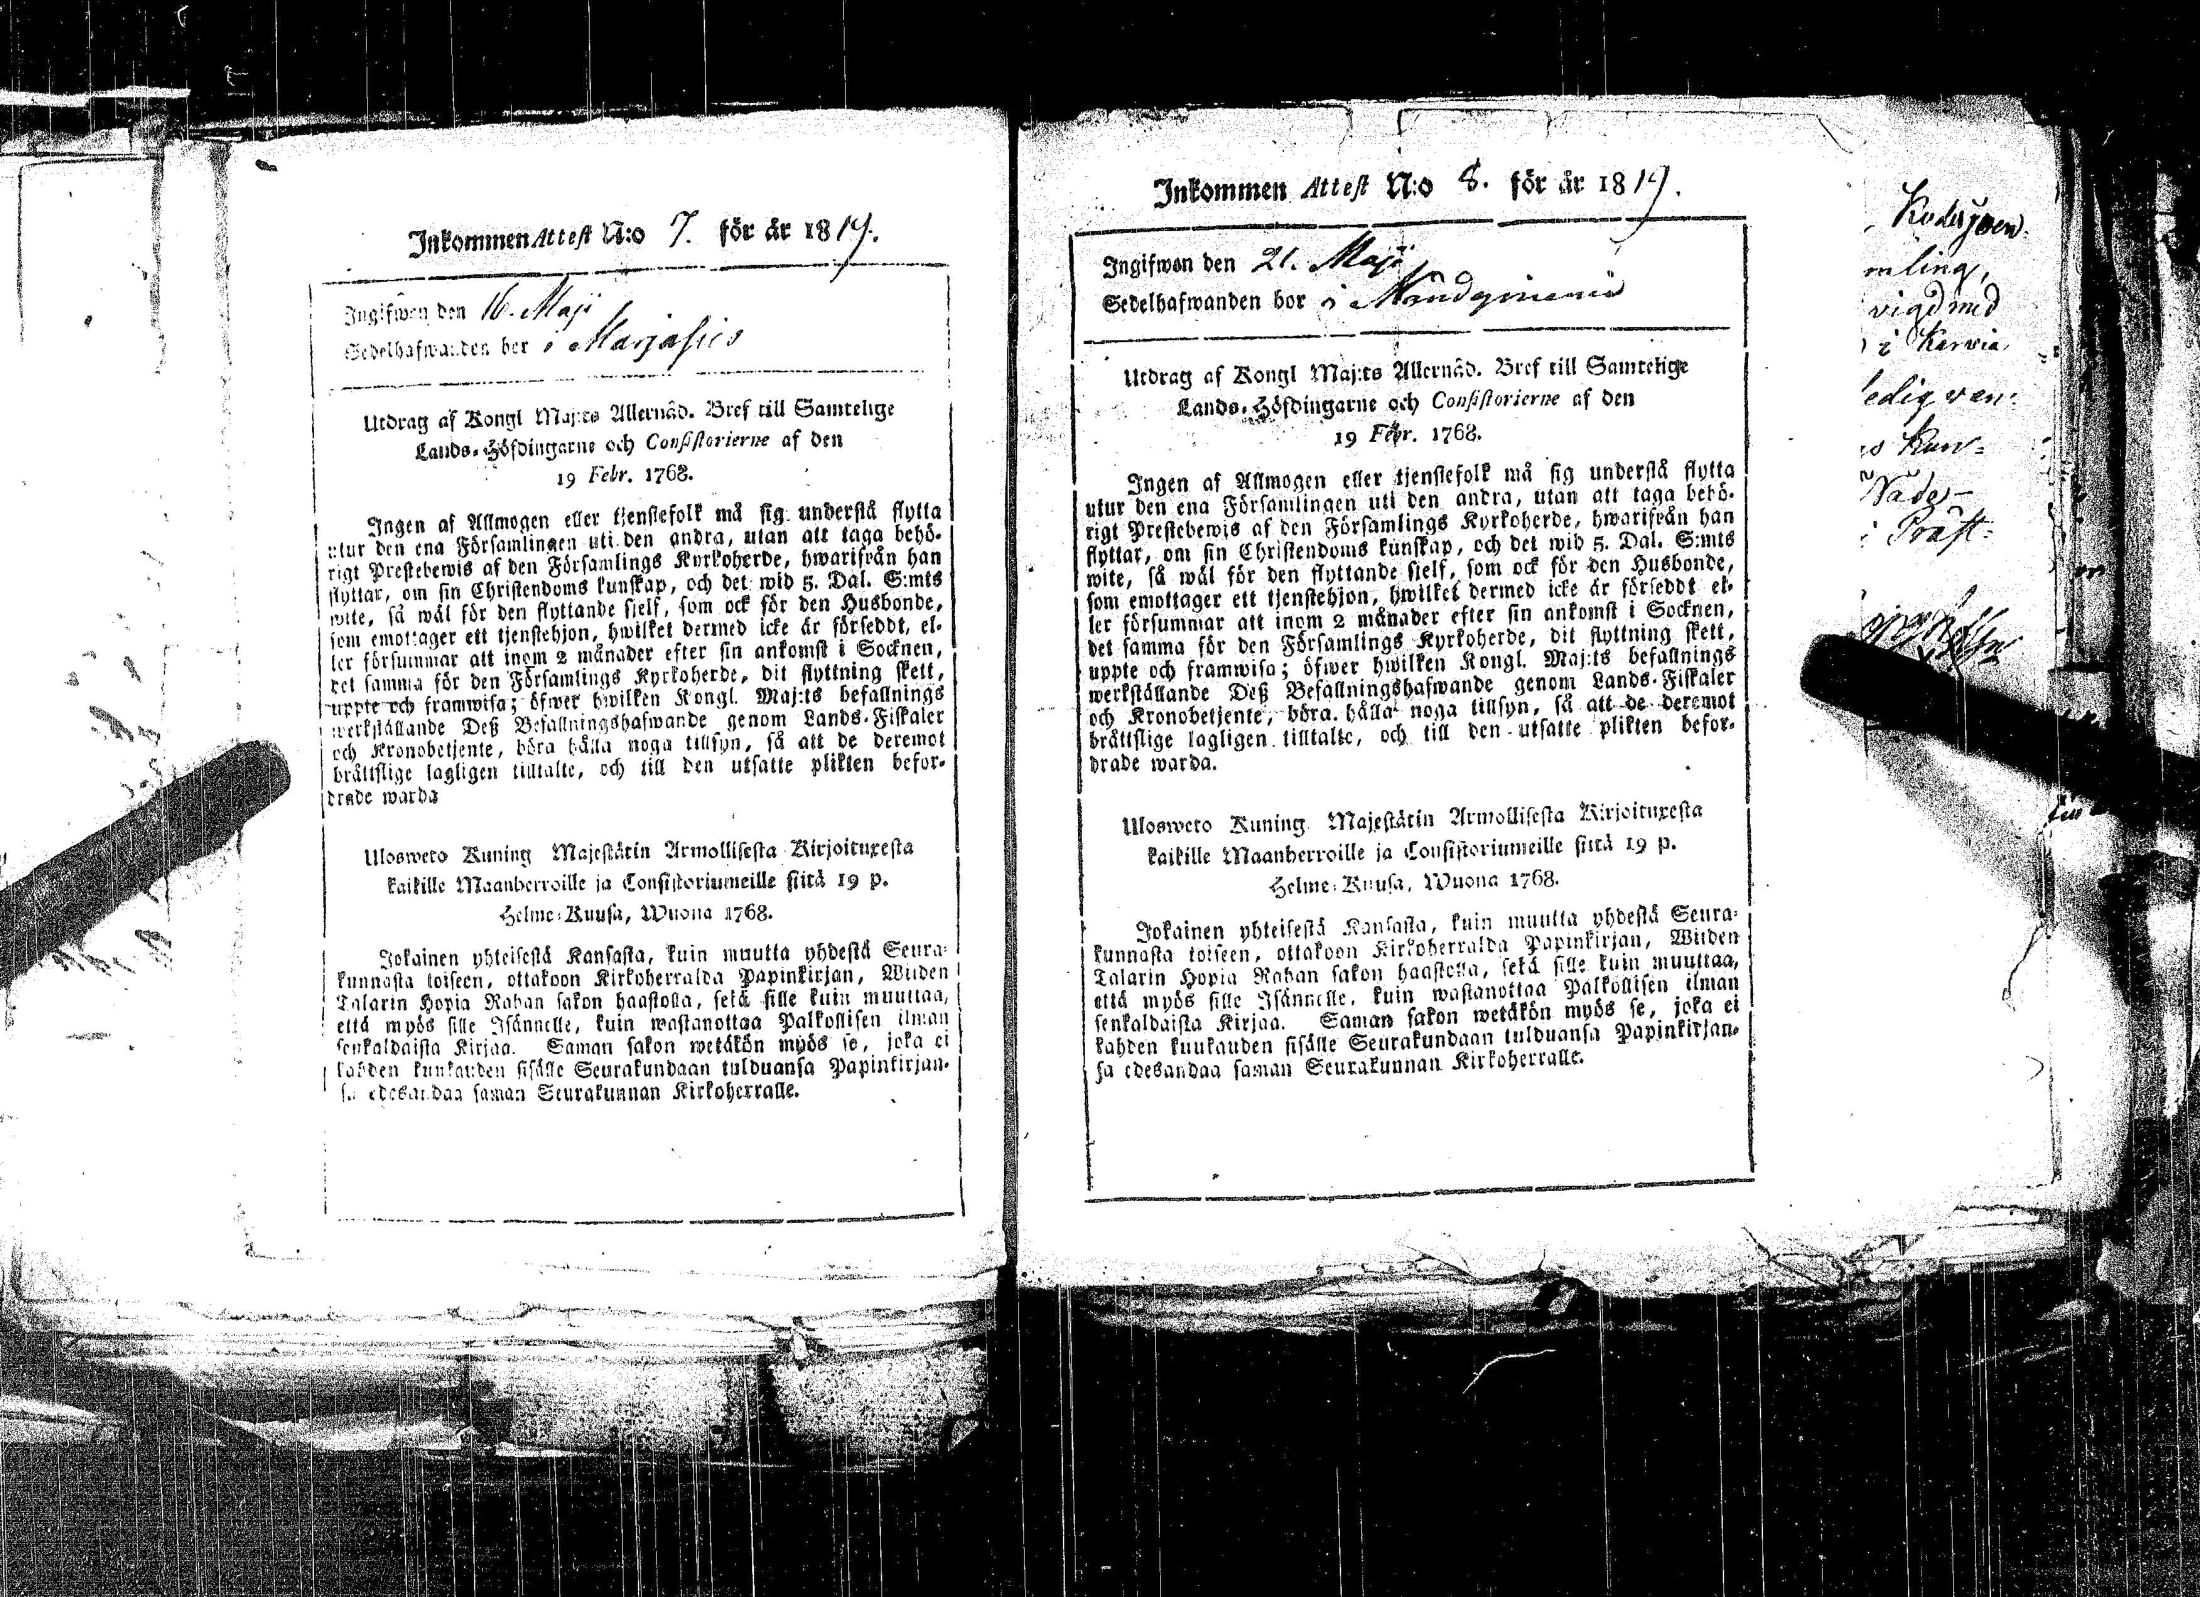 Inkommen Attest N:o 7. för år 1819.
Ingifwen den 16. Maji
Sedelhafwanden bor i
Utdrag af Kongl Maj:ts Allernåd. Bref till Samtelige
Lands-Höfdingarne och Consistorierne af den
19 Febr. 1768.
Ingen af Allmogen eller tjenstefolk må sig understå flytta
utur den ena Församlingen uti den andra, utan att taga behö-
rigt Prestebewis af den Församlings Kyrkoherde, hwarifrån han
flyttar, om sin Christendoms kunskap, och det wid 5. Dal. S:mts
wite, så wäl för den flyttande sjelf, som ock för den Husbonde,
som emottager ett tjenstehjon, hwilket dermed icke är försedt, el-
ler försummar att inom 2 månader efter sin ankomst i Socknen,
det samma för den Församlings Kyrkoherde, dit flyttning skett,
uppte och framwisa; öfwer hwilken Kongl. Maj:ts befallnings
werkställande Deß Befallningshafwande genom Lands-Fiskaler
och Kronobetjente, böra hålla noga tillsyn, så att de deremot
bråttslige lagligen tilltalte, och till den utsatte plikten befor-
drade warda
Ulosweto Kuning Majestätin Armollisesta Kirjoituxesta
kaikille Maanherroille ja Consistoriumeille siitä 19 p.
Helme-Kuusa, Wuona 1768.
Jokainen yhteisestä Kansasta, kuin muutta yhdestä Seura-
kunnasta toiseen, ottakoon Kirkoherralda Papinkirjan, Wiiden
Talarin Hopia Rahan sakon haastolla, sekä sille kuin muuttaa,
että myös sille Isännelle, kuin wastanottaa Palkollisen ilman
senkaldaista Kirjaa. Saman sakon wetäkön myös se, joka ei
kahden kuukauden sisälle Seurakundaan tulduansa Papinkirjan-
sa edesandaa saman Seurakunnan Kirkoherralle.
Inkommen Attest N:o 8. för år 1819.
Ingifwen den 21. Maji
Sedelhafwanden bor i
Utdrag af Kongl Maj:ts Allernåd. Bref till Samtelige
Lands-Höfdingarne och Consistorierne af den
19 Febr. 1768.
Ingen af Allmogen eller tjenstefolk må sig understå flytta
utur den ena Församlingen uti den andra, utan att taga behö-
rigt Prestebewis af den Församlings Kyrkoherde, hwarifrån han
flyttar, om sin Christendoms kunskap, och det wid 5. Dal. S:mts
wite, så wäl för den flyttande sjelf, som ock för den Husbonde,
som emottager ett tjenstehjon, hwilket dermed icke är förseddt el-
ler försummar att inom 2 månader efter sin ankomst i Socknen,
det samma för den Församlings Kyrkoherde, dit flyttning skett,
uppte och framwisa; öfwer hwilken Kongl. Maj:ts befallnings
werkställande Deß Befallningshafwande genom Lands-Fiskaler
och Kronobetjente, böra hålla noga tillsyn, så att de deremot
bråttslige lagligen tilltalte, och till den utsatte plikten befor-
drade warda.
Ulosweto Kuning Majestätin Armollisesta Kirjoituxesta
kaikille Maanherroille ja Consistoriumeille siitä 19 p.
Helme-Kuusa, Wuona 1768.
Jokainen yhteisestä Kansasta, kuin muutta yhdestä Seura-
kunnasta toiseen, ottakoon Kirkoherralda Papinkirjan, Wiiden
Talarin Hopia Rahan sakon haastolla, sekä sille kuin muuttaa,
että myös sille Isännelle, kuin wastanottaa Palkollisen ilman
senkaldaista Kirjaa. Saman sakon wetäkön myös se, joka ei
kahden kuukauden sisälle Seurakundaan tulduansa Papinkirjan-
sa edesandaa saman Seurakunnan Kirkoherralle.
mling,
vigd med
i Karvia
ledig
Nåde-
i Präst-